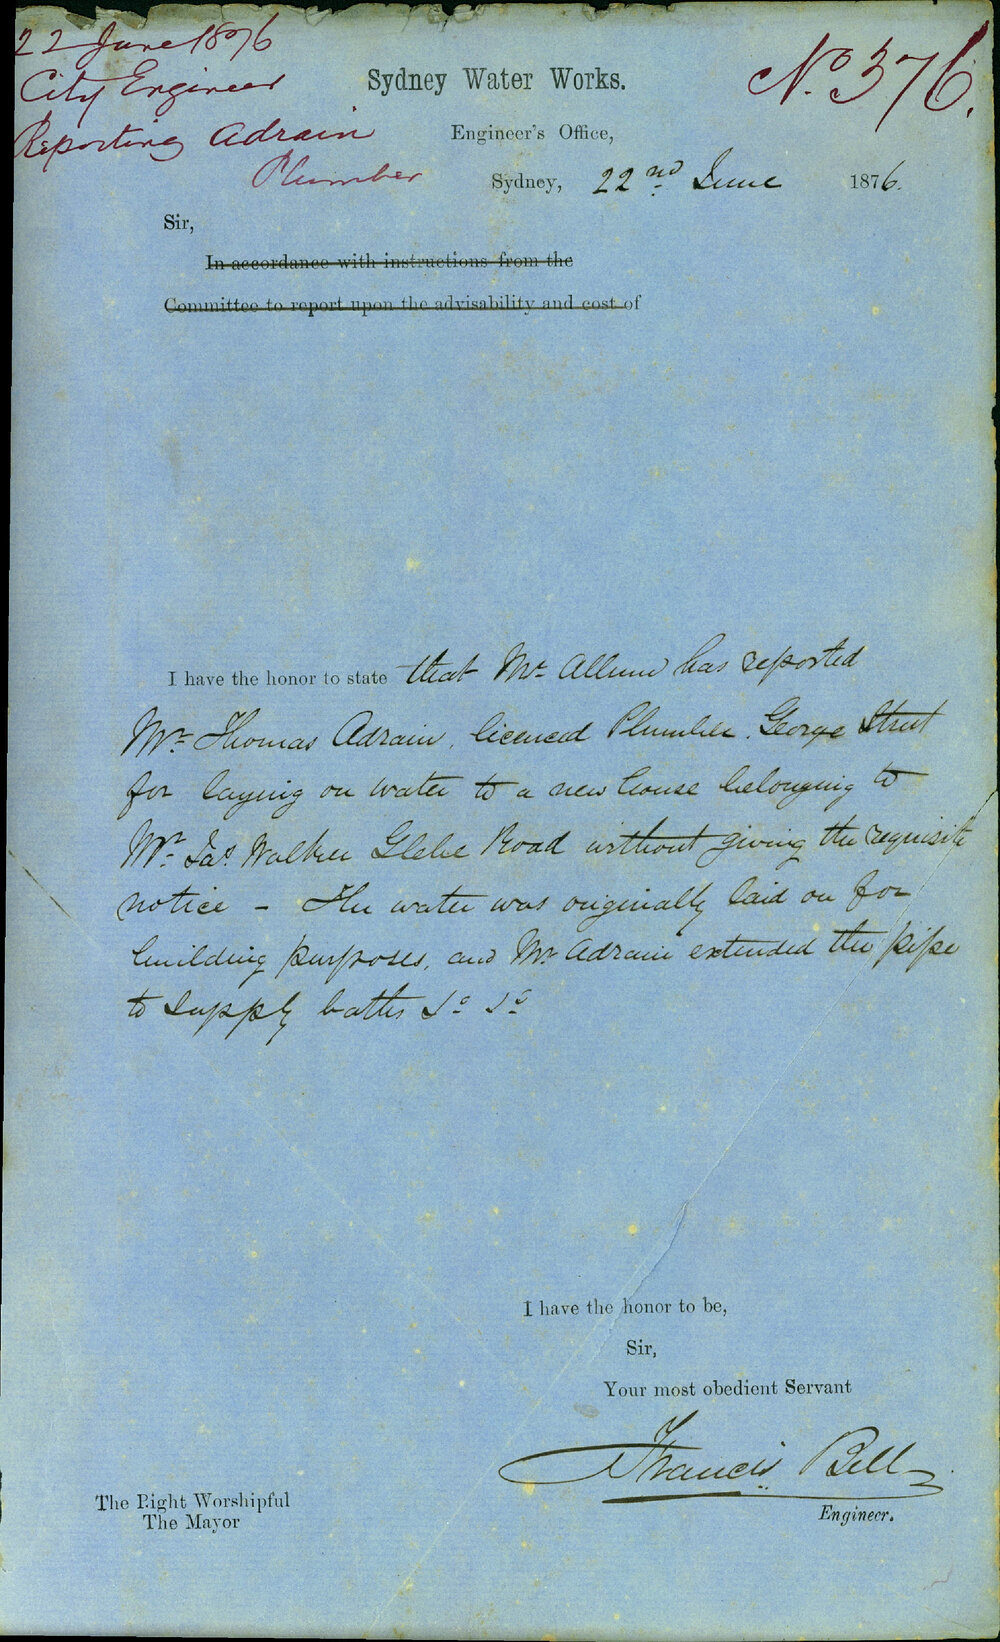 22 June 1876
City Engineer
Reporting Adrain
Plumber
No. 376.
Sydney Water Works.
Engineer's Office,
Sydney, 22nd June 1876.
Sir,
In accordance with instructions from the
Committee to report upon the advisability and cost of
I have the honor to state that Mr Allum has reported
Mr Thomas Adrain, licenced Plumber, George Street
for laying on water to a new house belonging to
Mr Jas. Walker Glebe Road without giving the requisite
notice - The water was originally laid on for
building purposes, and Mr Adrain extended the pipe
to supply baths
I have the honor to be,
Sir,
Your most obedient Servant
Francis Bell
Engineer.
The Right Worshipful
The Mayor